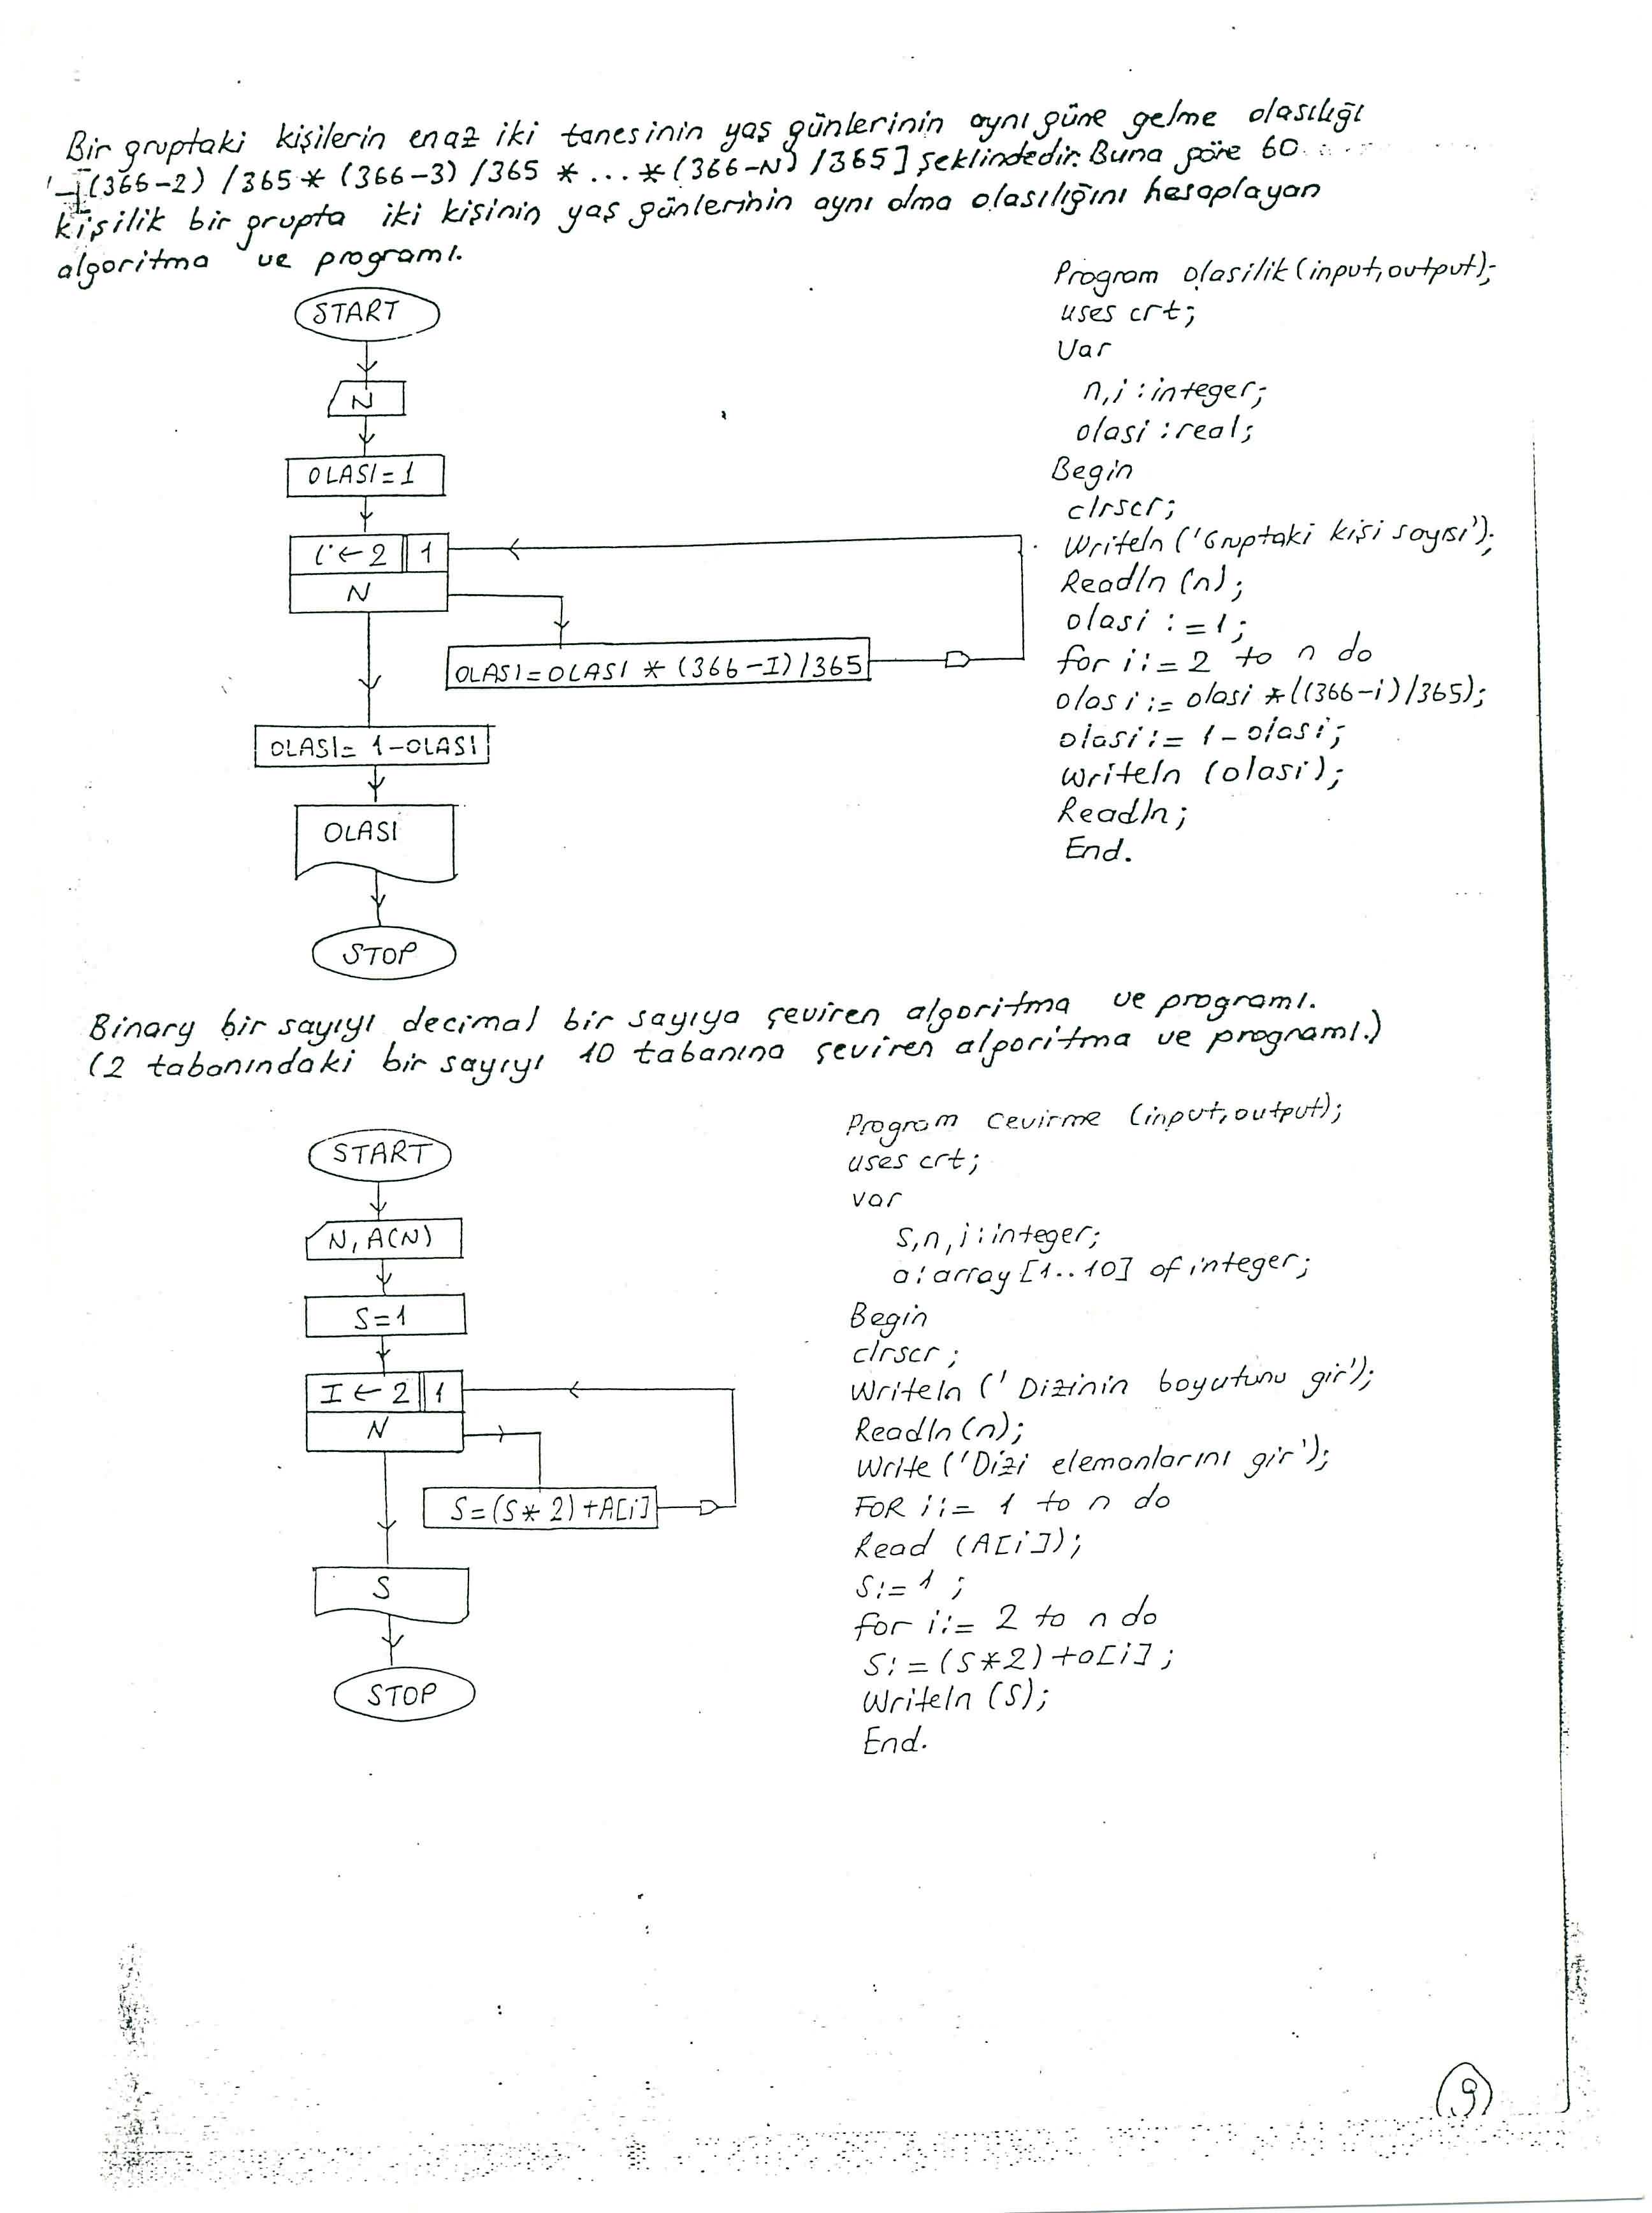 Bir gruptaki kişilerin enaz iki tanesinin yaş günlerinin aynı güne gelme olasılığı
1-[(366-2) /365 * (366-3) /365 * ... * (366-N) /365] şeklindedir. Buna göre 60
kişilik bir grupta iki kişinin yaş günlerinin aynı olma olasılığını hesaplayan
algoritma ve programı.
START
N
OLASI=1
i←2 1
N
OLASI=OLASI * (366-I)/365
OLASI= 1-OLASI
OLASI
STOP
Program olasilik (input,output);
uses crt;
Var
n,i : integer;
olasi : real;
Begin
clrscr;
Writeln ('Gruptaki kişi sayısı');
Readln (n);
olasi := 1;
for i:= 2 to n do
olasi := olasi *((366-i)/365);
olasi := 1-olasi;
writeln (olasi);
Readln;
End.
Binary bir sayıyı decimal bir sayıya çeviren algoritma ve programı.
(2 tabanındaki bir sayıyı 10 tabanına çeviren algoritma ve programı.)
START
N, A(N)
S=1
I ← 2 1
N
S=(S* 2)+A[i]
S
STOP
Program Cevirme (input,output);
uses crt;
var
s,n,i:integer;
a:array [1..10] of integer;
Begin
clrscr;
Writeln (' Dizinin boyutunu gir');
Readln (n);
Write ('Dizi elemanlarını gir');
FOR i:= 1 to n do
Read (A[i]);
S:= 1 ;
for i:= 2 to n do
S:=(S*2)+a[i];
Writeln (S);
End.
9